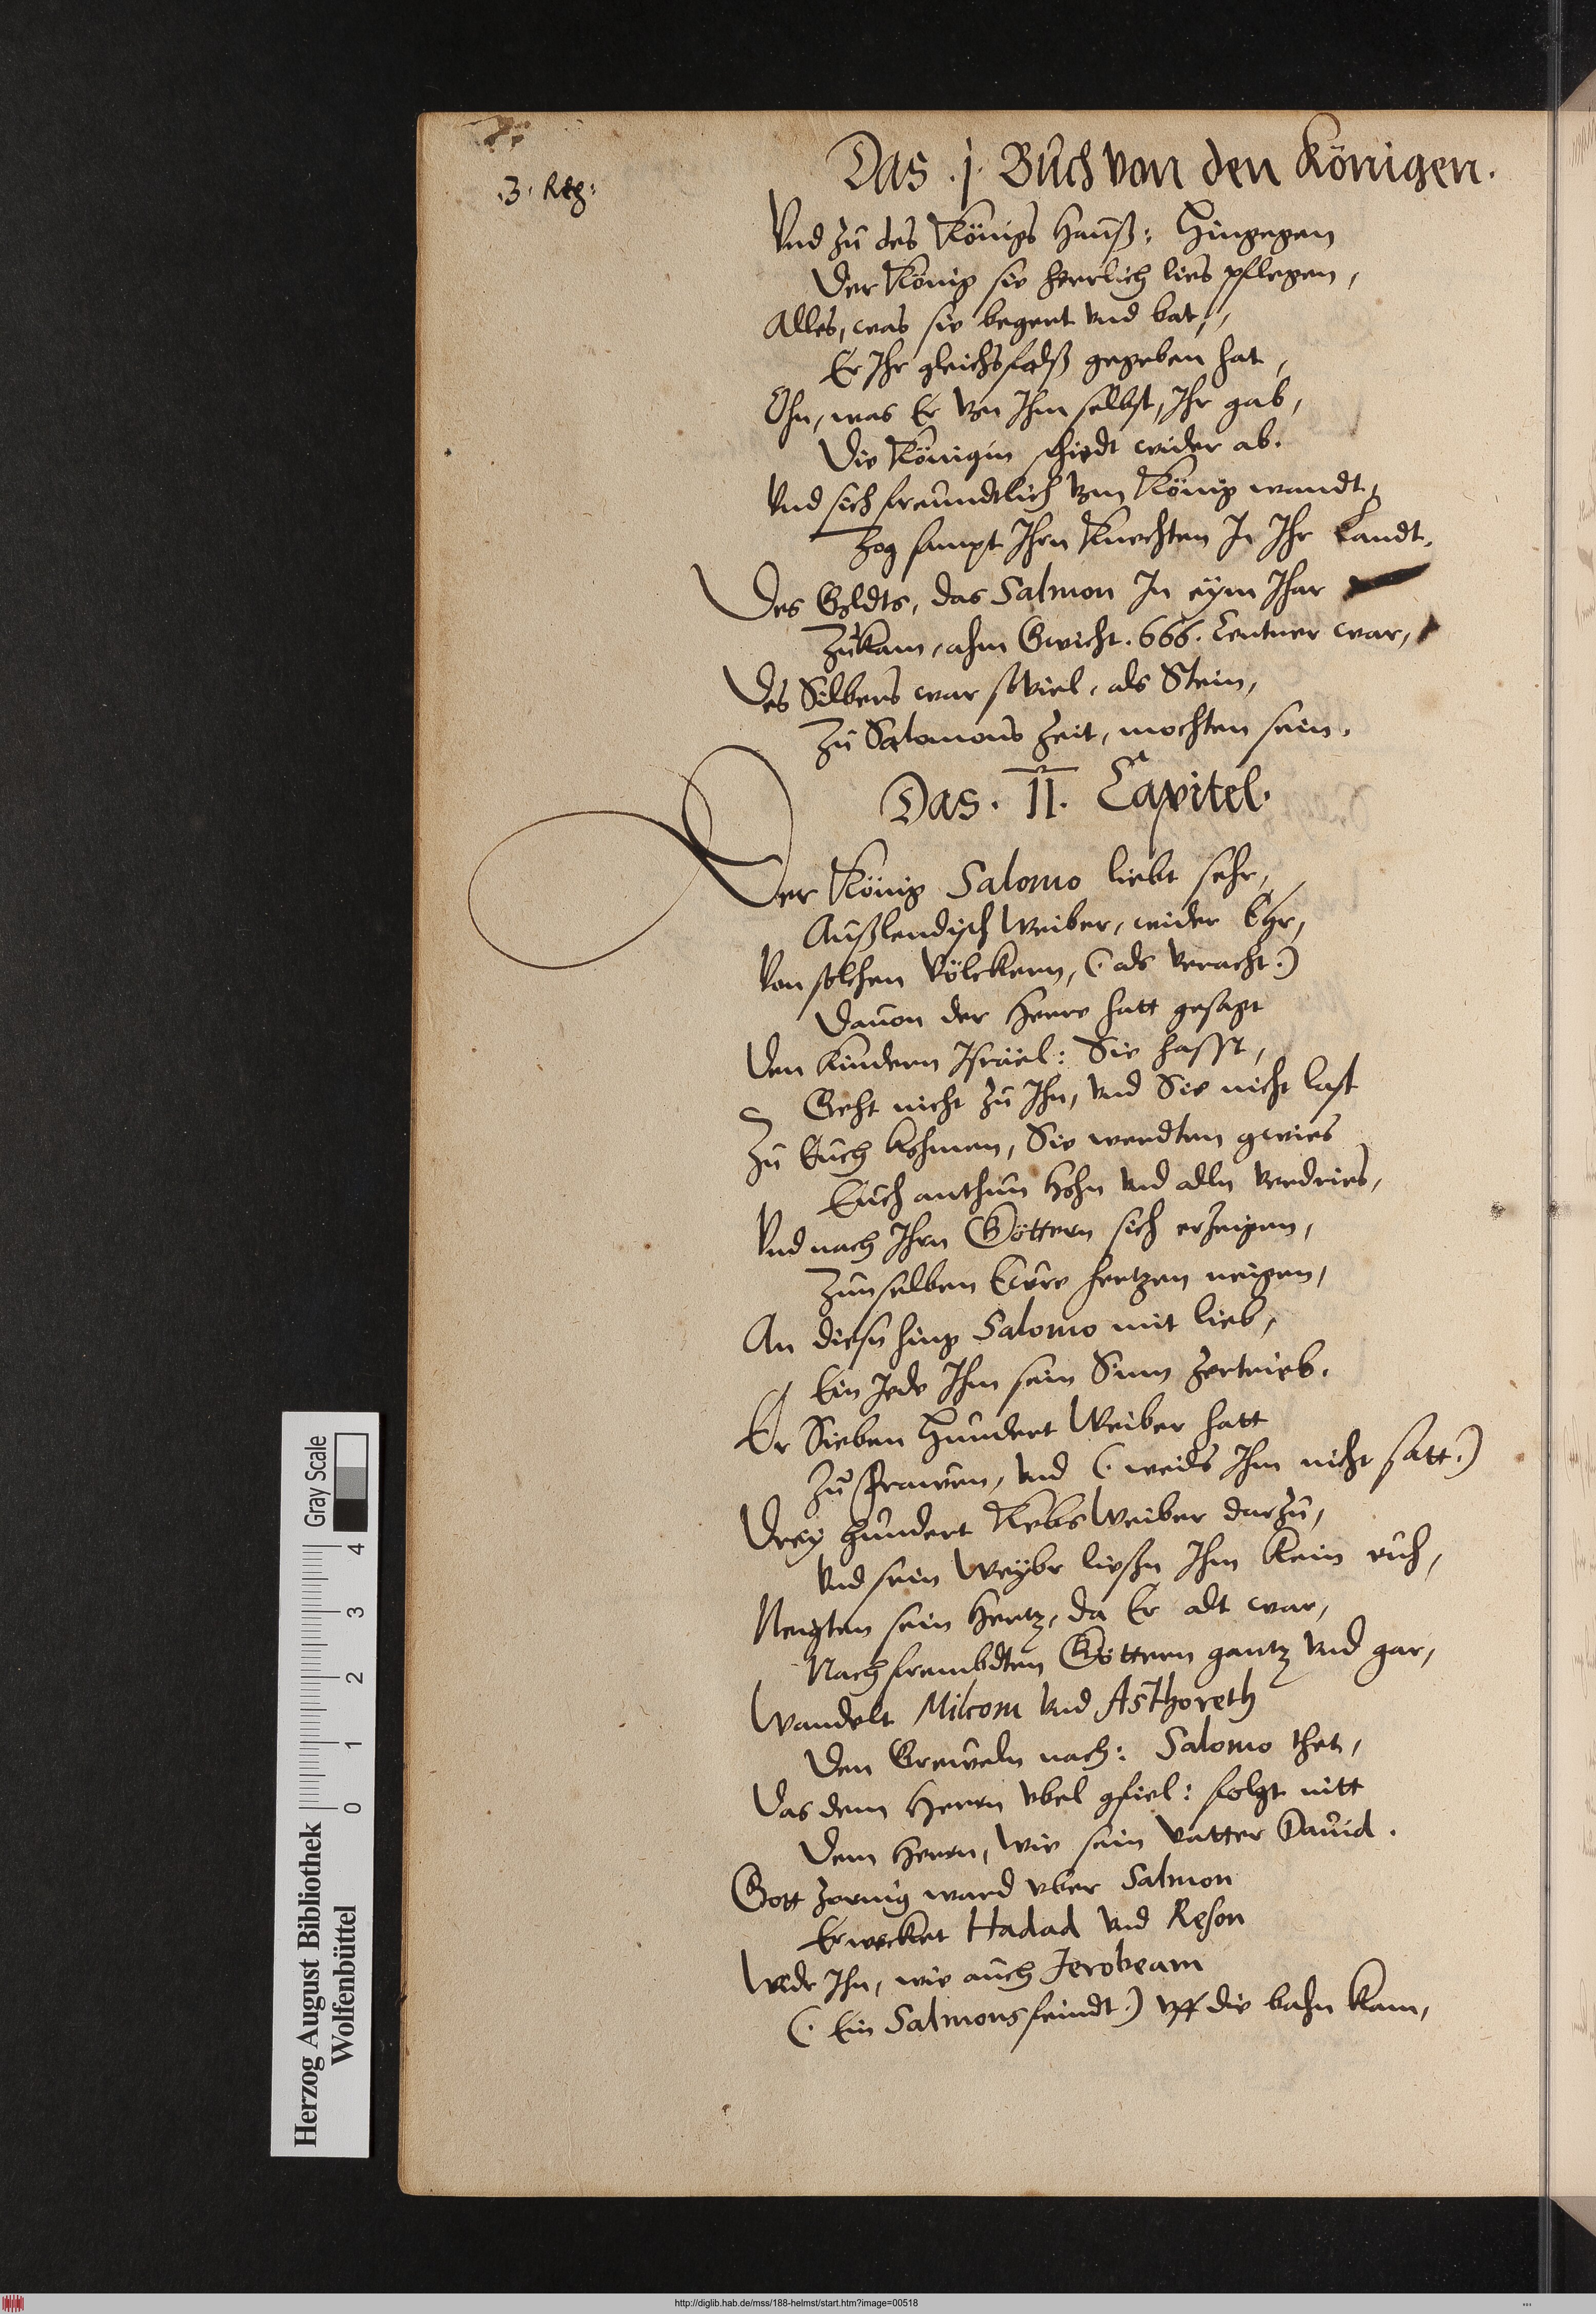 .3. Reg:
Das .j. Buch von den Königen.
Vnd zu des Königs Hauß: Hingegen
Der König sie herrlich lies pflegen,
Alles, was sie begert vnd bat,
Er Ihr gleichsfalß gegeben hat,
Ohn, was Er von Ihm selbst, Ihr gab,
Die Königin schiedt wider ab.
Vnd sich freundtlich vom König wandt,
Zog sampt Ihrn Knechten In Ihr Landt.
Des Goldts, das Salmon In eym Ihar
Zukam, ahm Gwicht .666. Centner war,
Des Silbers war soviel, als Stein,
Zu Salomons Zeit, mochten sein.
Das . 11. Capitel.
Der König Salomo liebt sehr,
Außlendisch Weiber, wider Ehr,
Von solchen Völckern, (. als veracht .)
Dauon der Herre hatt gesagt
Den Kindern Israël: Sie hasst,
Geht nicht zu Ihn, vnd Sie nicht last
Zu Euch kohmen, Sie werdten gwies
Euch anthun Hohn vnd alln verdries,
Vnd nach Ihrn Göttern sich erzeigen,
Zunselben Ewre hertzen neigen,
An diesn hing Salomo mit lieb,
Ein Jede Ihm sein Sinn zertrieb.
Er Sieben Hundert Weiber hatt
Zu Frawen, vnd (. weils Ihm nicht satt .)
Drey hundert Kebs Weiber darzu,
Vnd sein Weyber ließn Ihm kein ruh,
Neigten sein Hertz, da Er alt war,
Nach frembdten Göttern gantz vnd gar,
Wandelt Milcom vnd Asthoreth
Den Greweln nach: Salomo thet,
Das dem Herrn vbel gfiel: folgt nitt
Dem Herrn, wie sein Vatter Dauid.
Gott zornig ward vber Salmon
Erwecket Hadad vnd Reson
Widr Ihn, wie auch Jerobeam
(. Ein Salmons feindt .) vff die bahn kam,
Herzog August Bibliothek
Wolfenbüttel
0 1 2 3 4
Gray Scale
http://diglib.hab.de/mss/188-helmst/start.htm?image=00518